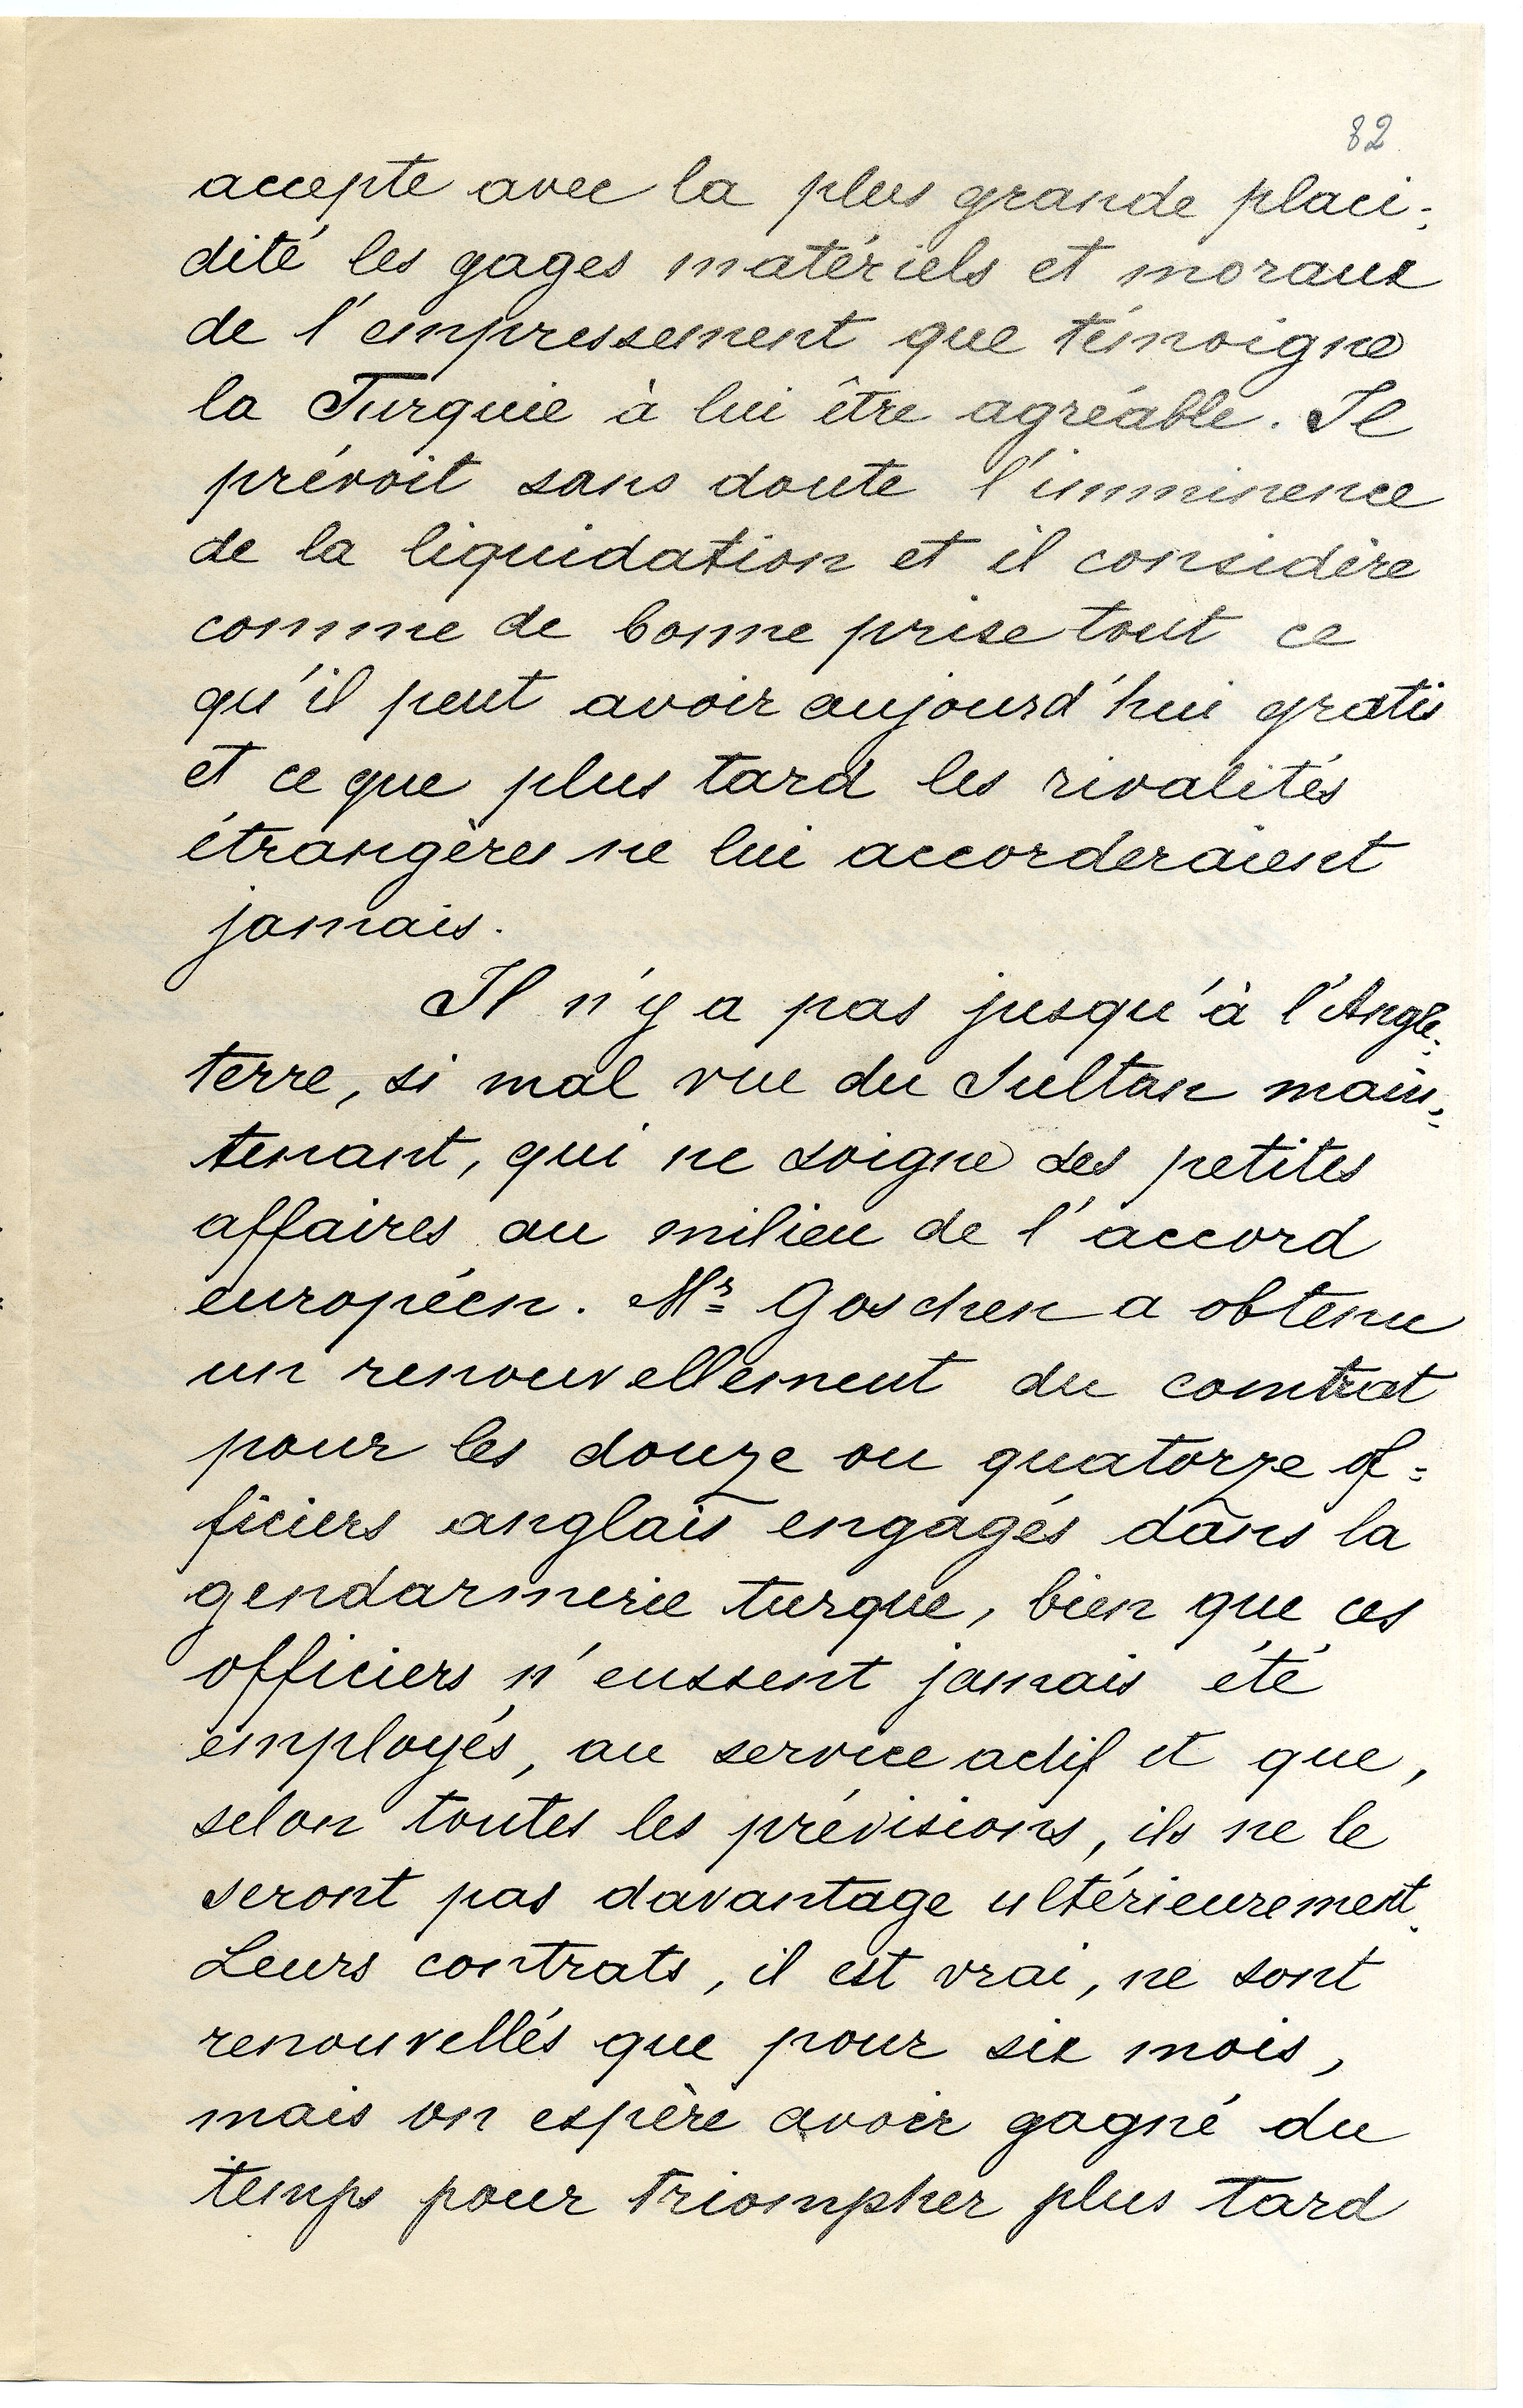 82
accepte avec la plus grande placi-
dité les gages matériels et moraux
de l'empressement que témoigne
la Turquie à lui être agréable. Il
prévoit sans doute l'imminence
de la liquidation et il considère
comme de bonne prise tout ce
qu'il peut avoir aujourd'hui gratis
et ce que plus tard les rivalités
étrangères ne lui accorderaient
jamais.
Il n'y a pas jusqu'à l'Angle-
terre, si mal vue du Sultan main-
tenant, qui ne soigne ses petites
affaires au milieu de l'accord
européen. Mr Goschen a obtenu
un renouvellement du contrat
pour les douze ou quatorze of=
ficiers anglais engagés dans la
gendarmerie turque, bien que ces
officiers n'eussent jamais été
employés, au service actif et que,
selon toutes les prévisions, ils ne le
seront pas davantage ultérieurement.
Leurs contrats, il est vrai, ne sont
renouvellés que pour six mois,
mais on espère avoir gagné du
temps pour triompher plus tard